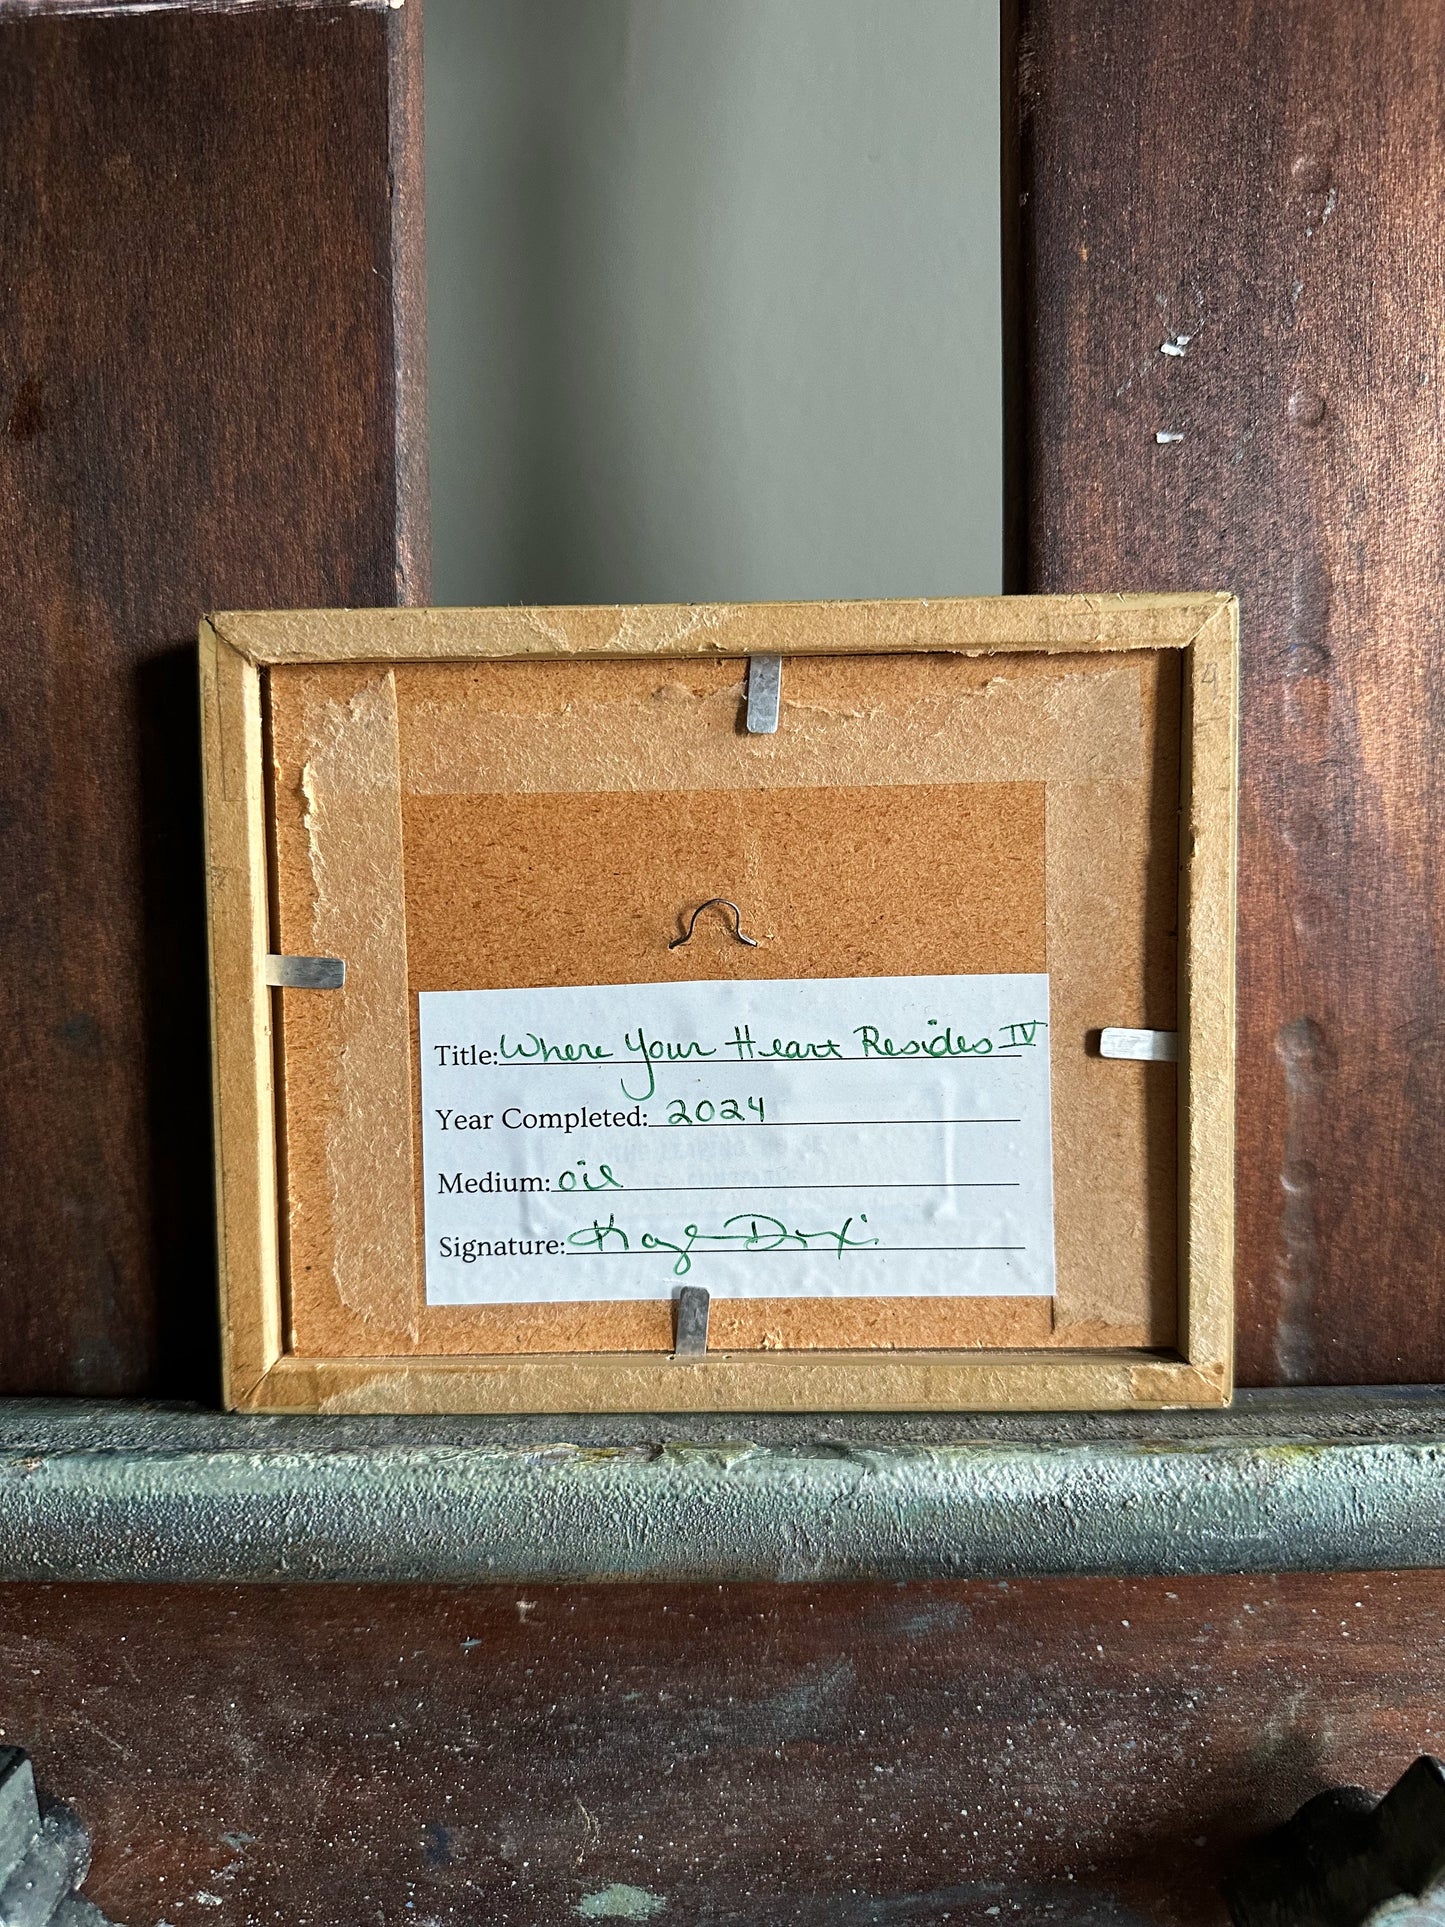 Title: Where Your Heart Resides IV
Year Completed: 2024
Medium: oil
Signature: